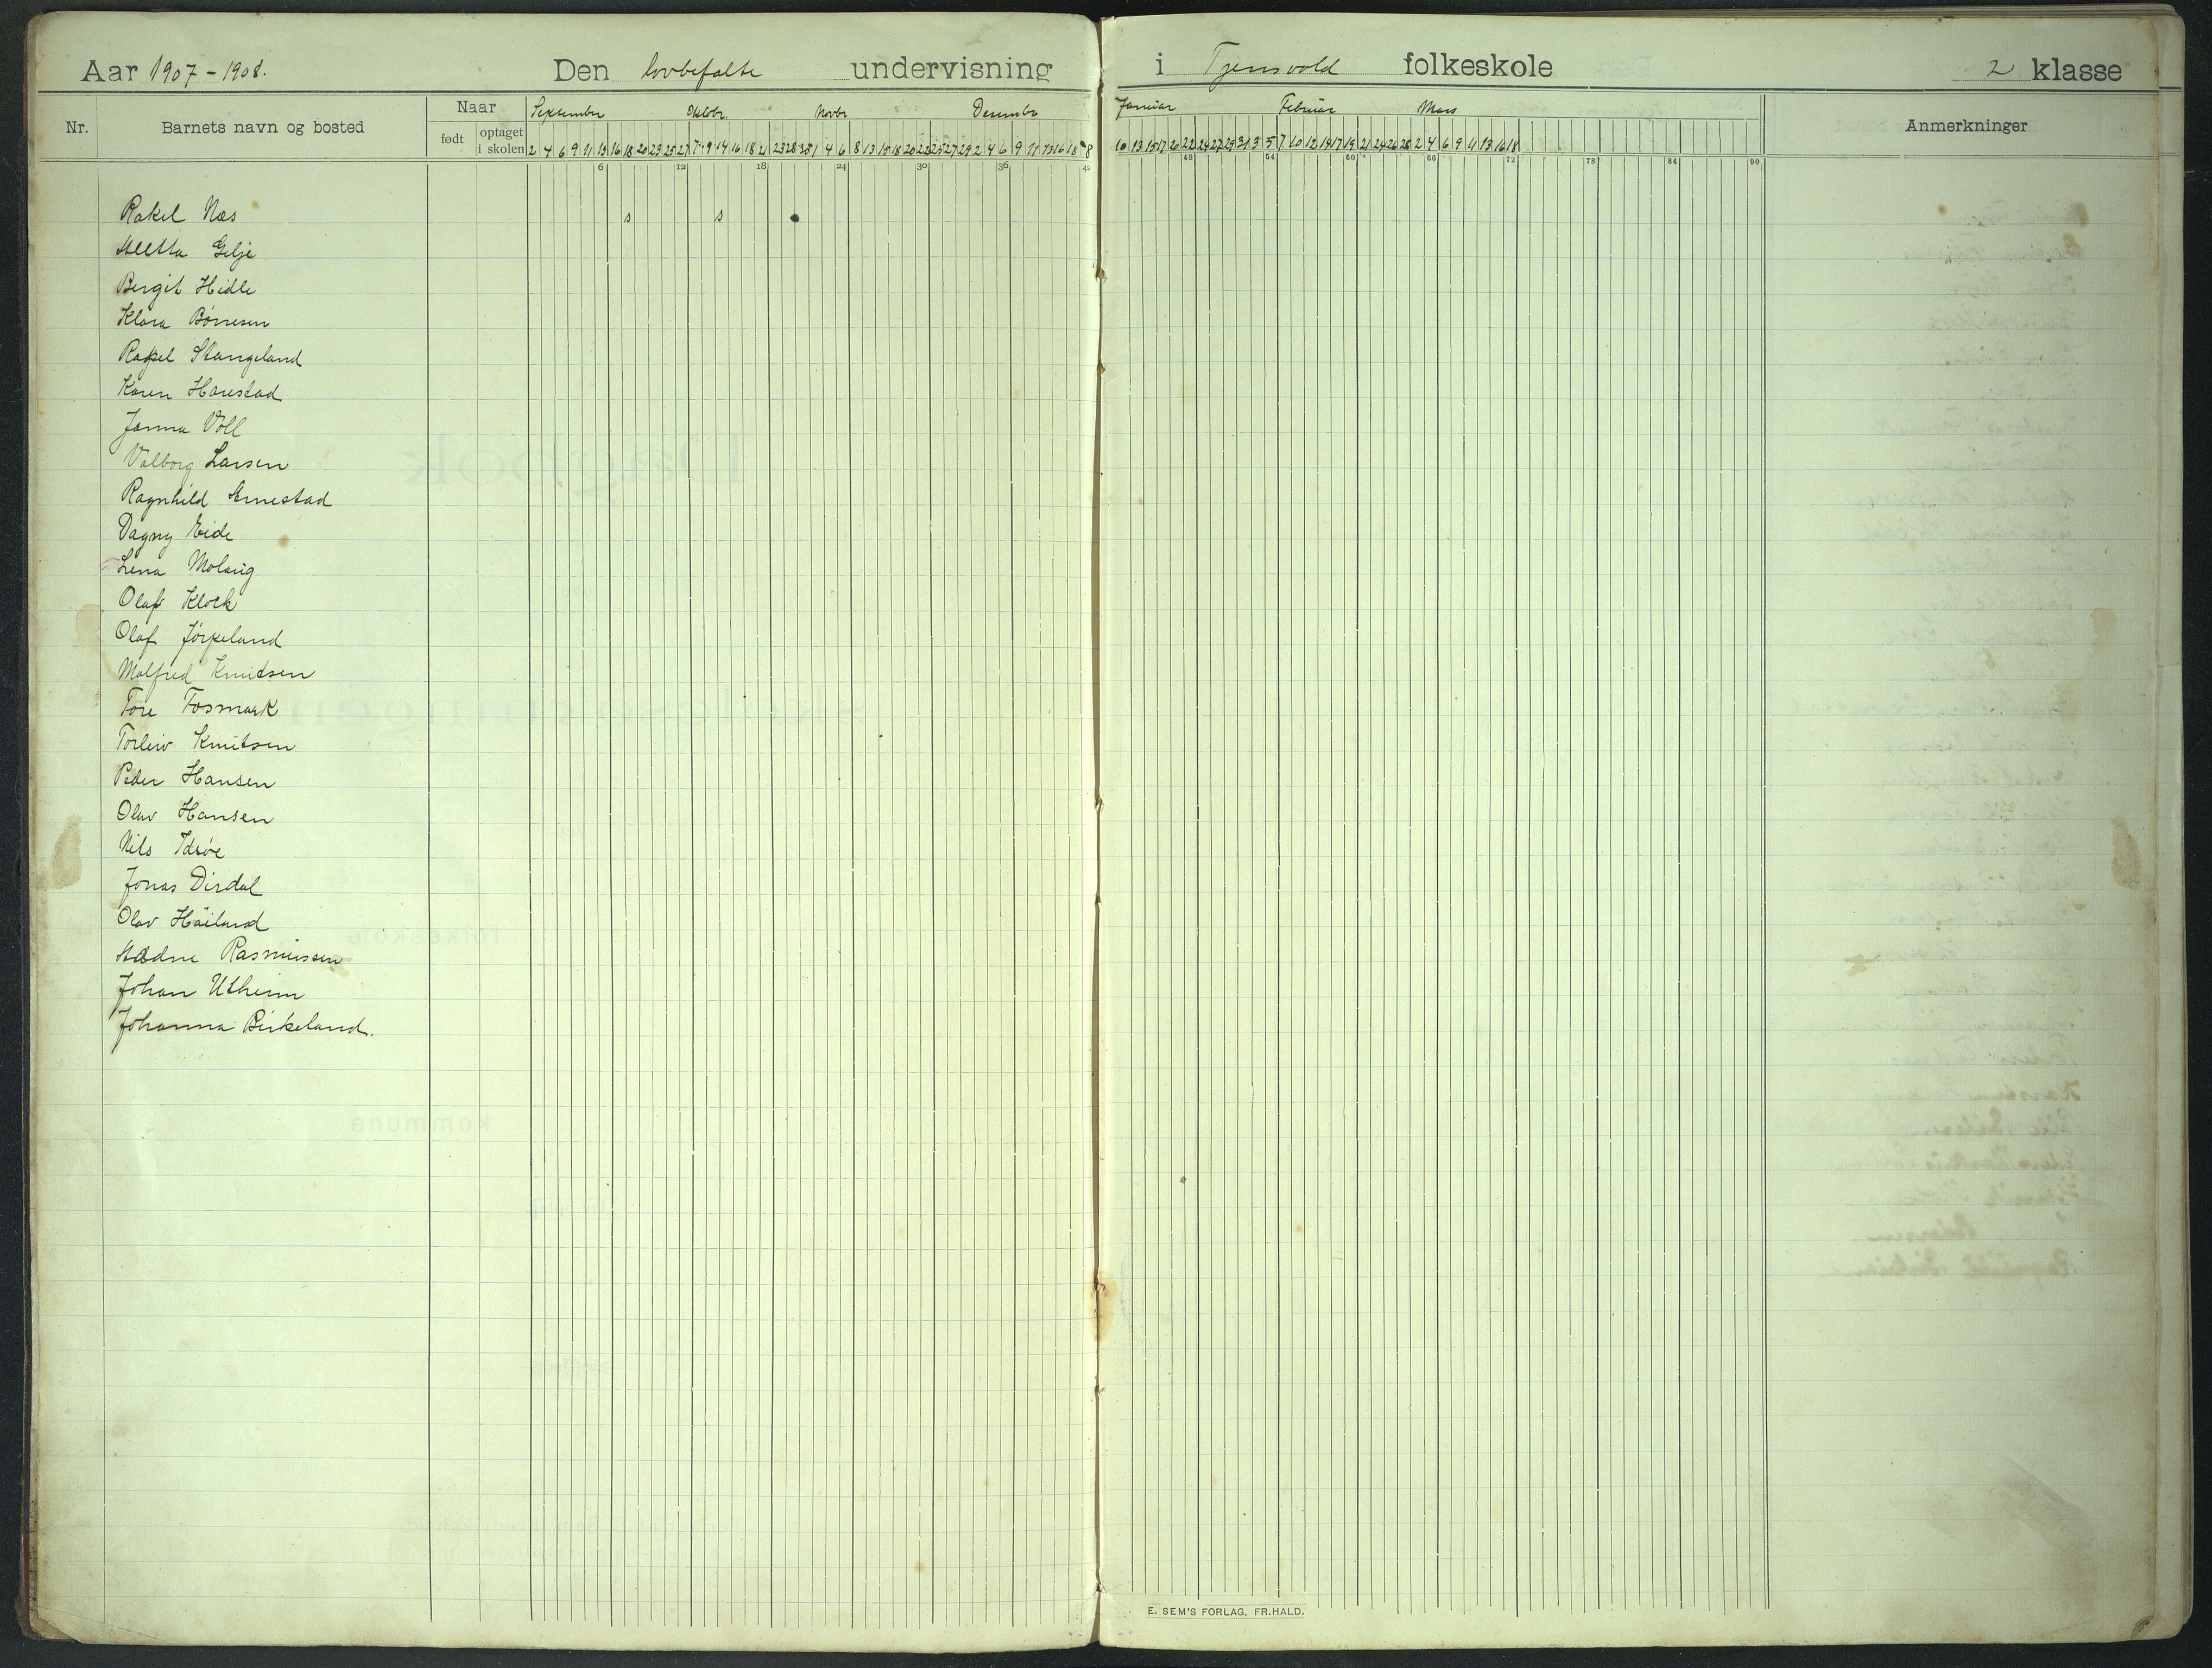 Aar 1907-1908. Den lovbefalte undervisning i Tjensvold folkeskole 2 klasse
Nr. Barnets navn og bosted Naar født optaget i skolen Anmerkninger
September Oktobr. Novbr Desembr Januar Februar Mars
2 4 6 9 11 13 16 18 20 23 25 27 7 9 14 16 18 21 23 28 30 1 4 6 8 13 15 18 20 22 25 27 29 2 4 6 9 11 13 16 18 8
10 13 15 17 20 22 24 27 29 31 3 5 7 10 12 14 17 19 21 24 26 28 2 4 6 9 11 13 16 18
6 12 18 24 30 36 42 48 54 60 66 72 78 84 90
Rakel Næs s s
Aletta Gilje
Bergit Hidle
Klara Børresen
Rakel Stangeland
Karen Harestad
Janna Voll
Valborg Larsen
Ragnhild Ernestad
Dagny Eide
Lena Molaug
Olaf Klock
Olaf Jørpeland
Malfred Knudsen
Tore Fosmark
Torleiv Knutsen
Peder Hansen
Olav Hansen
Nils Idsøe
Jonas Dirdal
Olav Høiland
Rasmussen
Johan Utheim
Johanna Birkeland.
E. SEM'S FORLAG, FR.HALD.